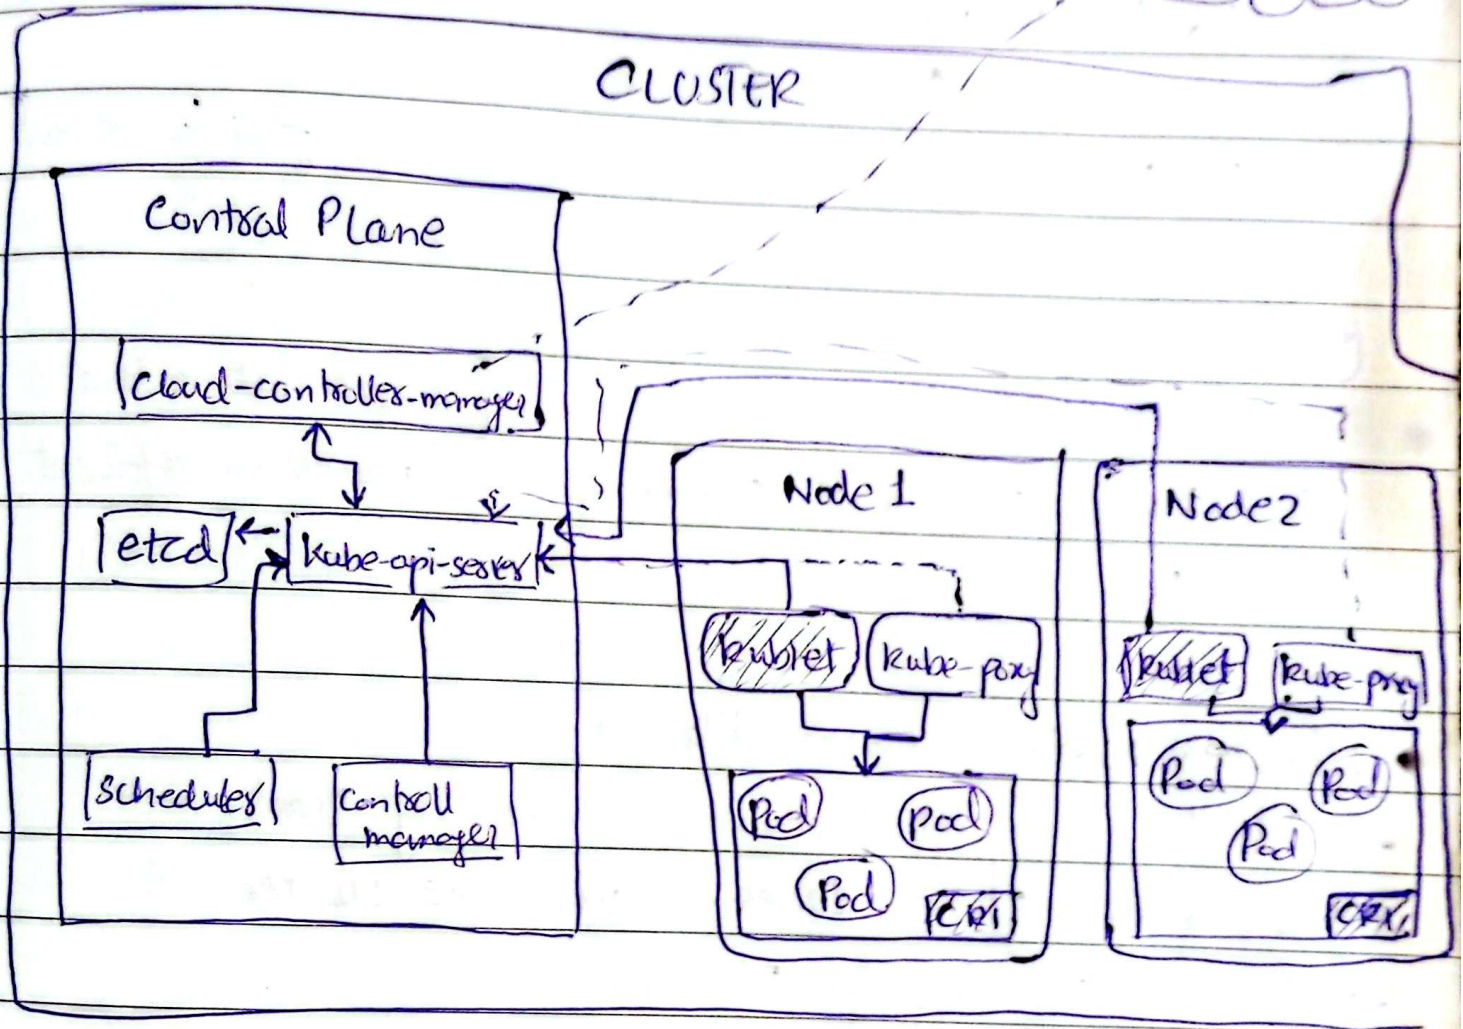 CLUSTER
Control Plane
cloud-controller-manager
etcd
kube-api-server
scheduler
controll
manager
Node 1
kublet
kube-poxy
Pod
Pod
Pod
CRI
Node 2
kublet
kube-proxy
Pod
Pod
Pod
CRI